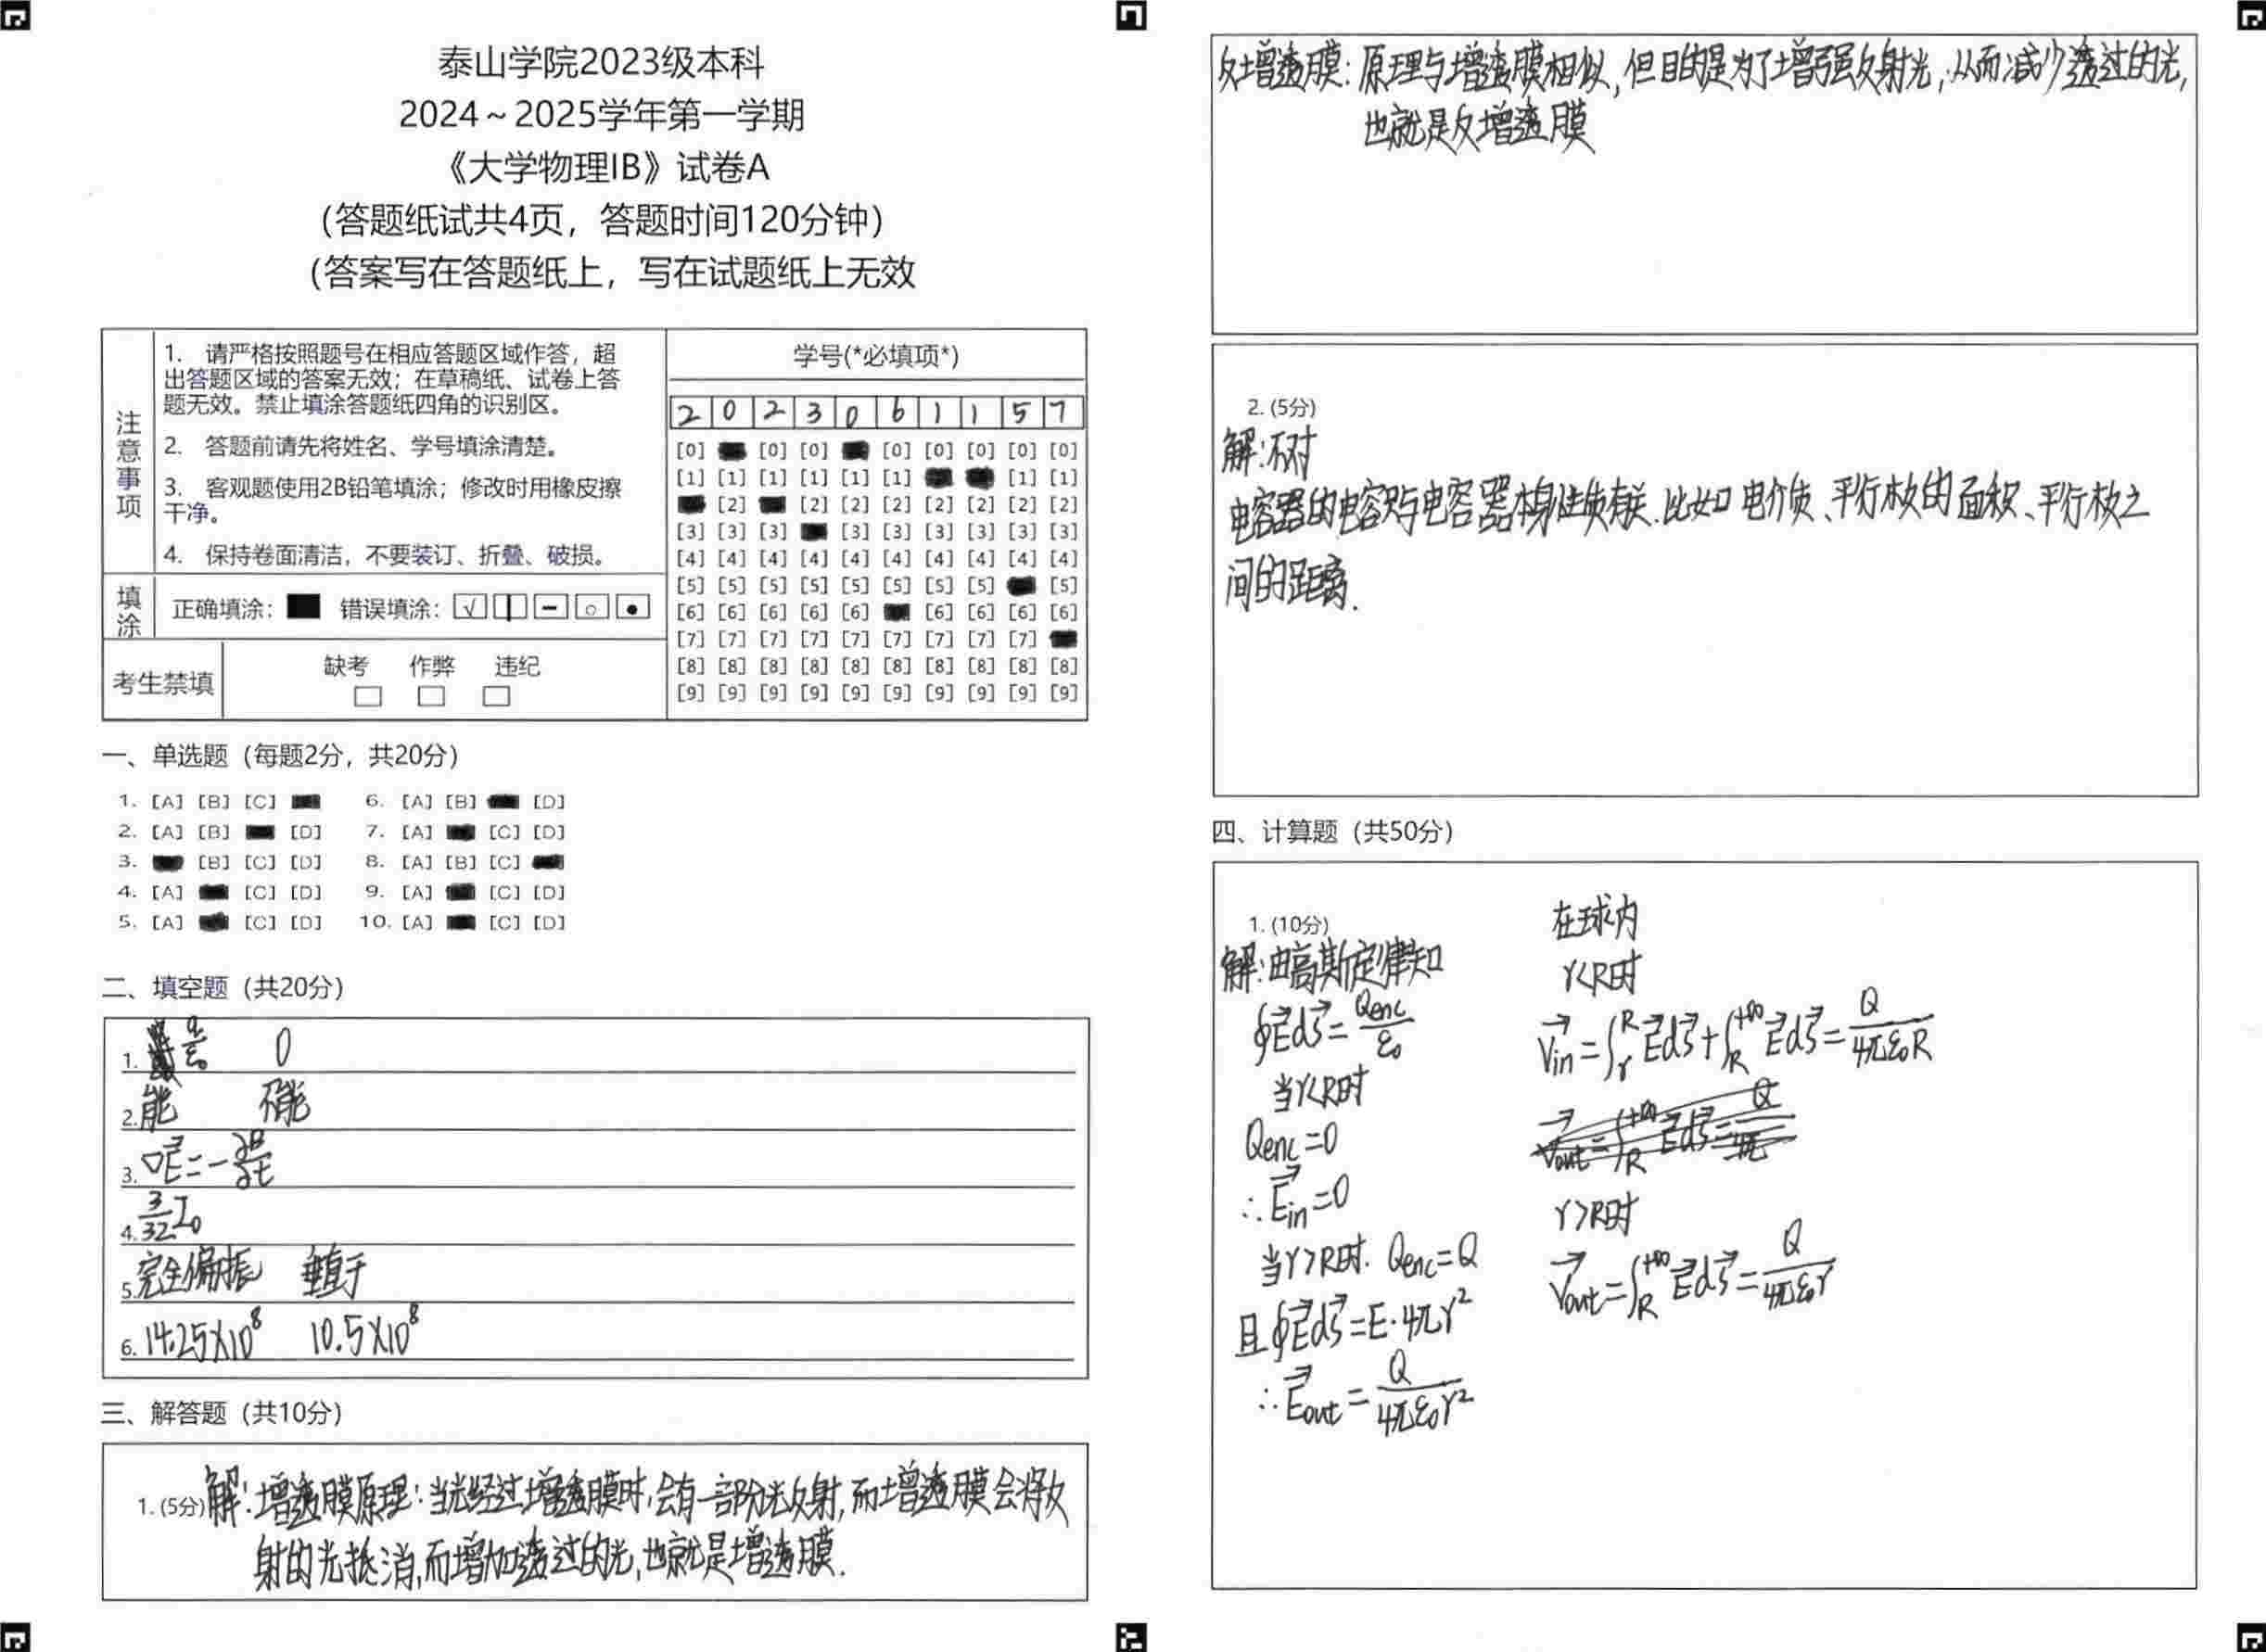 泰山学院2023级本科
2024～2025学年第一学期
《大学物理IB》试卷A
(答题纸试共4页，答题时间120分钟)
(答案写在答题纸上，写在试题纸上无效
注意事项
1. 请严格按照题号在相应答题区域作答，超
出答题区域的答案无效；在草稿纸、试卷上答
题无效。禁止填涂答题纸四角的识别区。
2. 答题前请先将姓名、学号填涂清楚。
3. 客观题使用2B铅笔填涂；修改时用橡皮擦
干净。
4. 保持卷面清洁，不要装订、折叠、破损。
填涂 正确填涂： 错误填涂： √
考生禁填 缺考 作弊 违纪
学号(*必填项*)
2 0 2 3 0 6 1 1 5 7
[0] [0] [0] [0] [0] [0] [0] [0]
[1] [1] [1] [1] [1] [1] [1] [1]
[2] [2] [2] [2] [2] [2] [2] [2]
[3] [3] [3] [3] [3] [3] [3] [3] [3]
[4] [4] [4] [4] [4] [4] [4] [4] [4] [4]
[5] [5] [5] [5] [5] [5] [5] [5] [5]
[6] [6] [6] [6] [6] [6] [6] [6] [6]
[7] [7] [7] [7] [7] [7] [7] [7] [7]
[8] [8] [8] [8] [8] [8] [8] [8] [8] [8]
[9] [9] [9] [9] [9] [9] [9] [9] [9] [9]
一、单选题（每题2分，共20分）
1. [A] [B] [C] 6. [A] [B] [D]
2. [A] [B] [D] 7. [A] [C] [D]
3. [B] [C] [D] 8. [A] [B] [C]
4. [A] [C] [D] 9. [A] [C] [D]
5. [A] [C] [D] 10. [A] [C] [D]
二、填空题（共20分）
1. q/ε₀ 0
2. 能 不能
3. ▽E⃗=-∂B/∂t
4. 3/32 I₀
5. 完全偏振 垂直于
6. 14.25×10⁸ 10.5×10⁸
三、解答题（共10分）
1. (5分) 解：增透膜原理：当光经过增透膜时，会有一部分光反射，而增透膜会将反
射的光抵消，而增加透过的光，也就是增透膜.
反增透膜：原理与增透膜相似，但目的是为了增强反射光，从而减少透过的光，
也就是反增透膜
2. (5分)
解：不对
电容器的电容只与电容器本身性质有关.比如电介质、平行板的面积、平行板之
间的距离.
四、计算题（共50分）
1. (10分)
解：由高斯定律知
∮E⃗dS⃗=Qenc/ε₀
当r<R时
Qenc=0
∴E⃗in=0
当r>R时. Qenc=Q
且∮E⃗dS⃗=E·4πr²
∴E⃗out=Q/4πε₀r²
在球内
r<R时
V⃗in=∫ᵣᴿE⃗dS⃗+∫_R^{+∞}E⃗dS⃗=Q/4πε₀R
r>R时
V⃗out=∫_R^{+∞}E⃗dS⃗=Q/4πε₀r